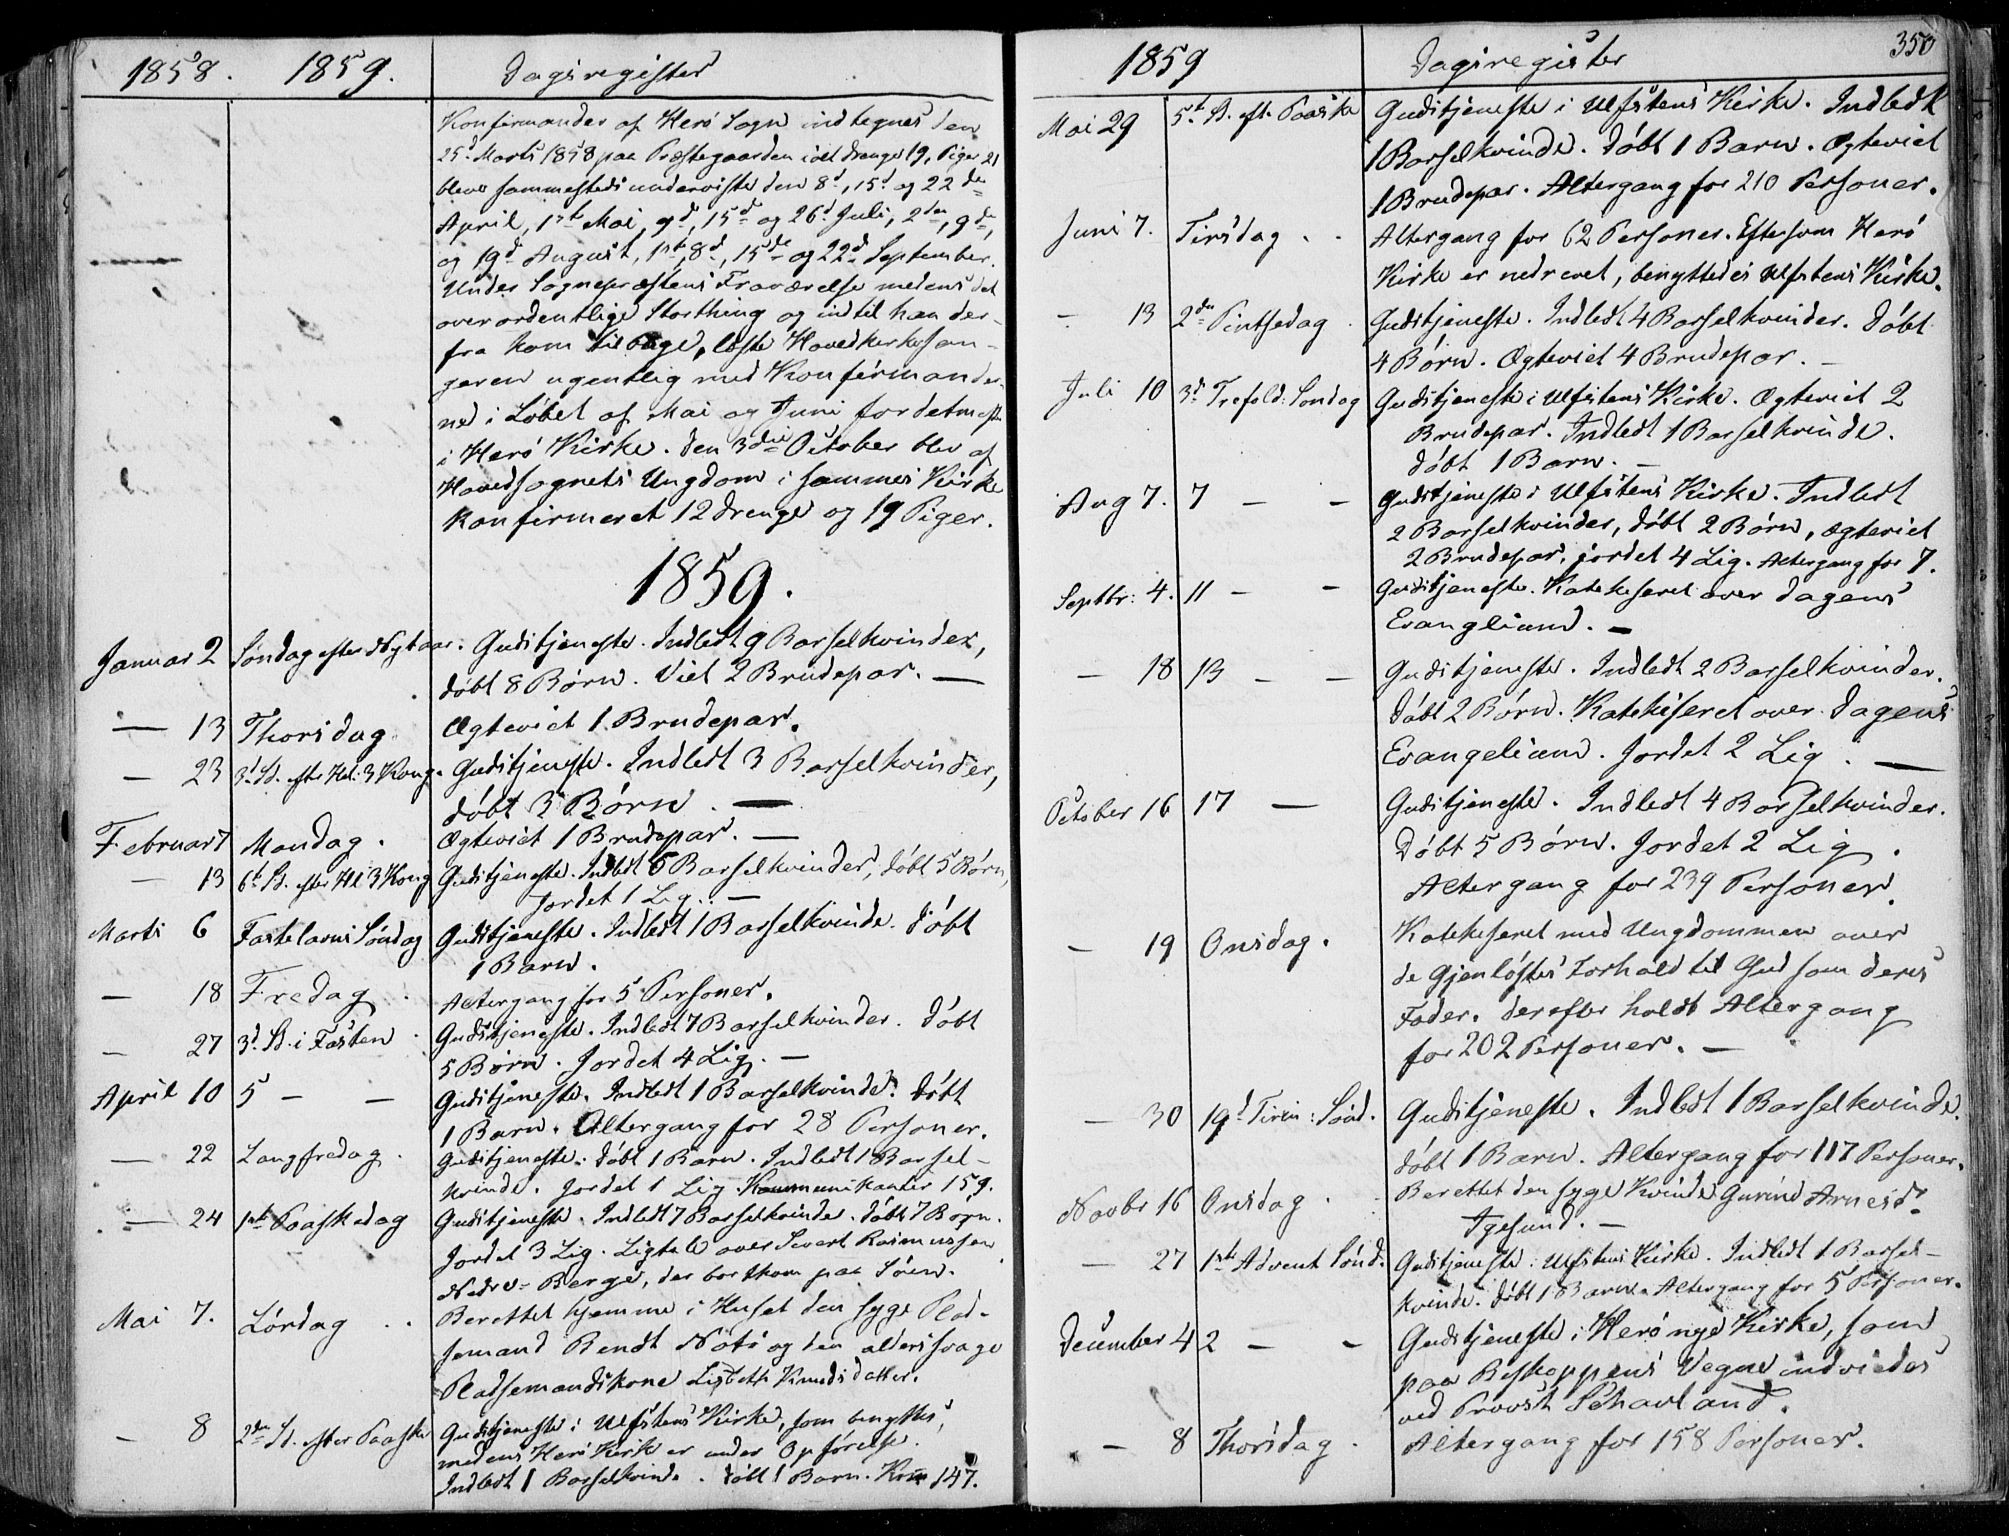 1858. 1859. Dagsregister
Konfirmander af Herö Sogn indtegnes den
25d Marts 1858 paa Præstegaarden i alt Drenge 19, Piger 21
bleve sammesteds underviste den 8d, 15d og 22de
April, 1ste Mai, 9d, 15d og 26d Juli, 2den, 9de,
og 19d August, 1ste, 8d, 15de og 22d September.
Under Sognepræstens Fraværelse medens det
overordentlige Storthing og indtil han der-
fra kom tilbage, læste Hovedkirkesan-
geren ugentlig med Konfirmander-
ne i Löbet af Mai og Juni for det meste
i Herö Kirke. Den 3die October blev af
Hovedsognets Ungdom i sammes Kirke
konfirmeret 12 Drenge og 19 Piger.
1859.
Januar 2 Søndag efter Nytaar. Gudstjeneste. Indledt 9 Barselkvinder,
döbt 8 Börn. Viet 2 Brudepar. —
— 13 Thorsdag Ægteviet 1 Brudepar.
— 23 3d S. efter Hel: 3 Kong. Gudstjeneste. Indledt 3 Barselkvinder,
döbt 3 Börn. —
Februar 7 Mandag. Ægteviet 1 Brudepar. —
— 13 6t S. efter Hl 3 Kong Gudstjeneste. Indledt 6 Barselkvinder, döbt 5 Börn,
Jordet 1 Lig. —
Marts 6 Fastelavns Söndag Gudstjeneste. Indledt 1 Barselkvinde. Döbt
1 Barn.
— 18 Fredag. Altergang for 5 Personer.
— 27 3d S. i Fasten. Gudstjeneste. Indledt 7 Barselkvinder. Döbt
5 Börn. Jordet 4 Lig. —
April 10 5 — — Gudstjeneste. Indledt 1 Barselkvinde. Döbt
1 Barn. Altergang for 28 Personer.
— 22 Langfredag. Gudstjeneste. Döbt 1 Barn. Indledt 1 Barsel-
kvinde. Jordet 1 Lig. Kommunikanter 159.
— 24 1ste Paaskedag Gudstjeneste. Indledt 7 Barselkvinder. Döbt 7 Börn.
Jordet 3 Lig. Ligtale over Sivert Rasmussen
Nedre-Berge, der bortkom paa Söen.
Mai 7. Lördag . . Berettet hjemme i Huset den syge Plad-
semand Bendt Nötö og den alderssvage
Pladsemandskone Lisbeth Knudsdatter.
— 8 2den S. efter Paaske Gudstjeneste i Ulfstens Kirke, som benyttes,
medens Herö Kirke er under Opförelse.
Indledt 1 Barselkvinde. Döbt 1 Barn. Kom 147.
1859 Dagsregister 350
Mai 29 5t S. eft. Paaske Gudstjeneste i Ulfstens Kirke. Indledt
1 Barselkvinde. Döbt 1 Barn. Ægteviet
1 Brudepar. Altergang for 210 Personer.
Juni 7. Tirsdag . . Altergang for 62 Personer. Eftersom Herö
Kirke er nedrevet, benyttedes Ulfstens Kirke.
— 13 2den Pintsedag. Gudstjeneste. Indledt 4 Barselkvinder. Döbt
4 Börn. Ægteviet 4 Brudepar. —
Juli 10 3d Trefold: Söndag Gudstjeneste i Ulfstens Kirke. Ægteviet 2
Brudepar. Indledt 1 Barselkvinde.
Döbt 1 Barn. —
Aug 7. 7 — — Gudstjeneste i Ulfstens Kirke. Indledt
2 Barselkvinder, döbt 2 Börn, ægteviet
2 Brudepar, jordet 4 Lig. Altergang for 7.
Septbr: 4. 11 — — Gudstjeneste. Katekiseret over Dagens
Evangelium. —
— 18 13 — — Gudstjeneste. Indledt 2 Barselkvinder.
Döbt 2 Börn. Katekiseret over Dagens
Evangelium. Jordet 2 Lig. —
October 16 17 — Gudstjeneste. Indledt 4 Barselkvinder.
Döbt 5 Börn. Jordet 2 Lig.
Altergang for 239 Personer.
— 19 Onsdag. Katekiseret med Ungdommen over
de Gjenlöstes Forhold til Gud som deres
Fader. Derefter holdt Altergang
for 202 Personer. —
— 30 19d Trin: Sönd. Gudstjeneste. Indledt 1 Barselkvinde.
Döbt 1 Barn. Altergang for 117 Personer.
Novbr 16 Onsdag. Berettet den syge Kvinde Gurine Arnesd.
Igesund. —
— 27 1ste Advent Sönd. Gudstjeneste i Ulfstens Kirke. Indledt 1 Barsel-
kvinde. Döbt 1 Barn. Altergang for 5 Personer.
December 4 2 — — Gudstjeneste i Herö nye Kirke, som
paa Biskoppens Vegne indviedes
ved Provst Schavland.
— 8 Thorsdag. Altergang for 158 Personer.